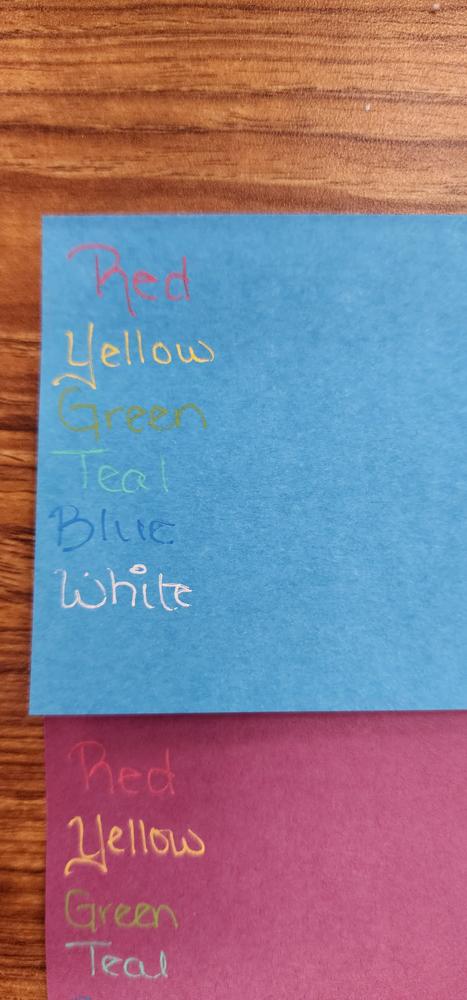 Red
Yellow
Green
Teal
Blue
White
Red
Yellow
Green
Teal